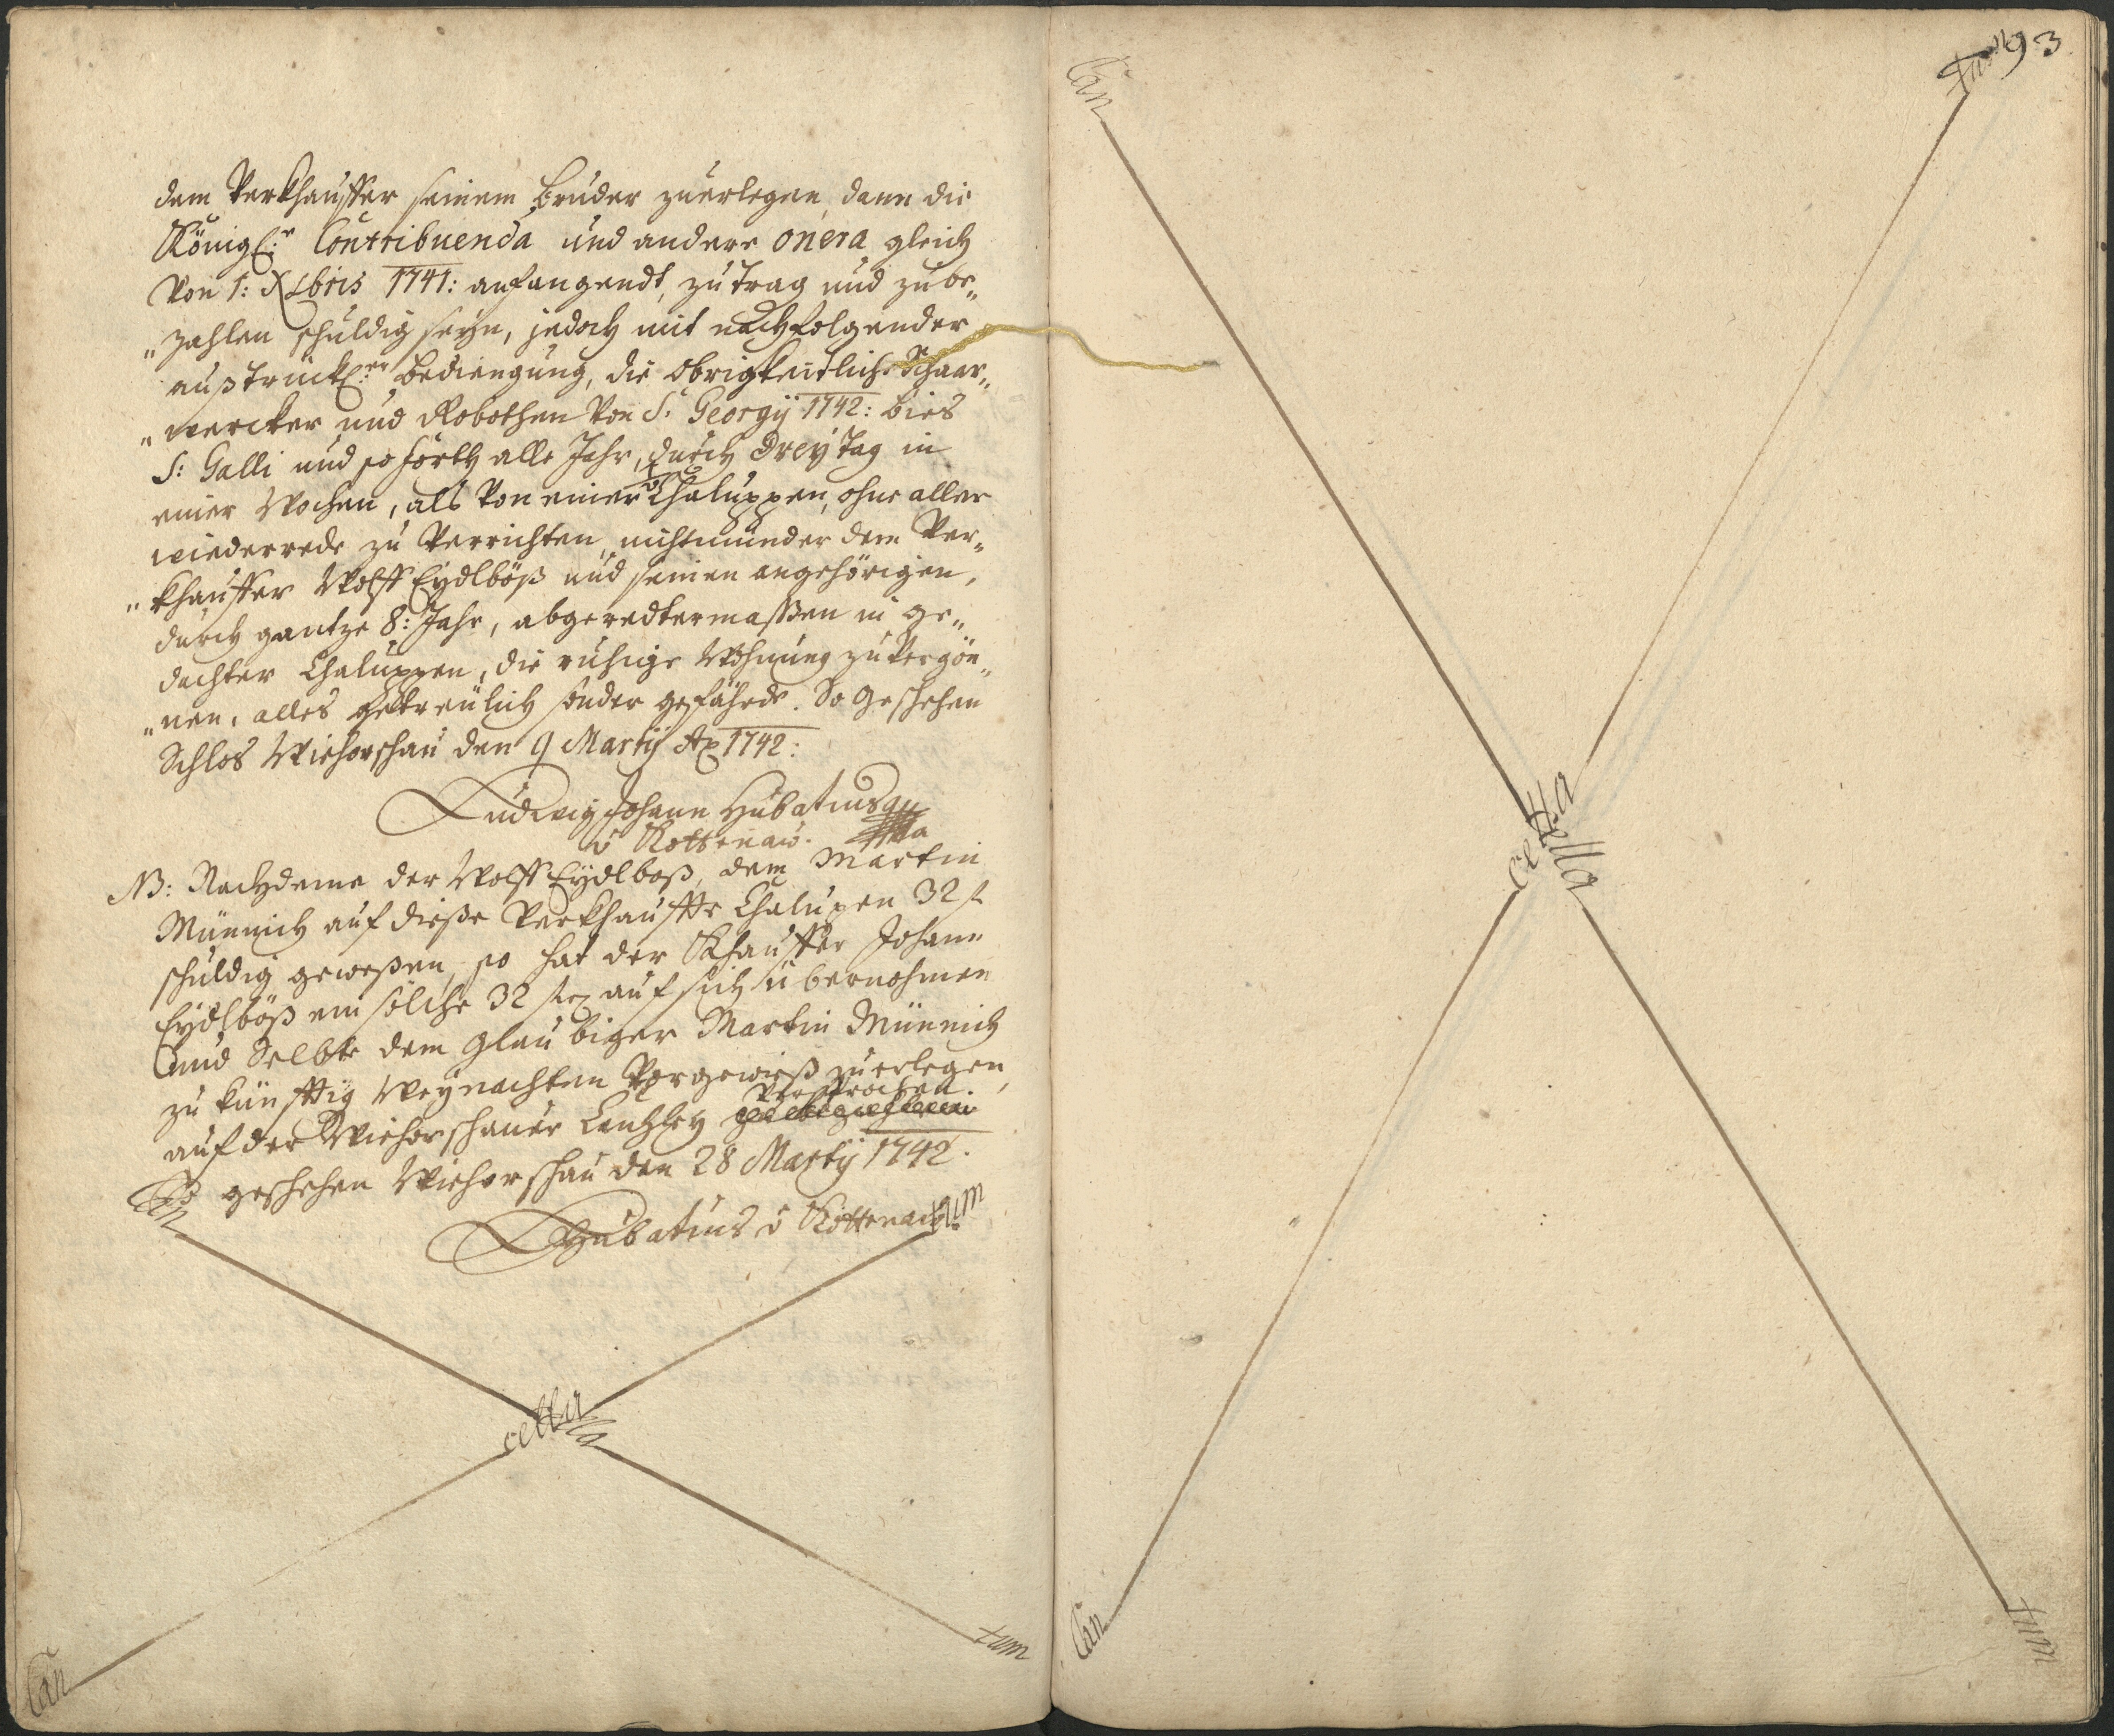 dem Verkhauffer seinem bruder zuerlegen, dann die
Königl:r Contribuenda und andere onera gleich
Von 1: Xbris 1741: anfangendt, zu trag und zu be„
„zahlen schuldig seyn, jedoch mit nachfolgender
außtrückl:er bediengung, die obrigkeitliche Schaar„
„wercker und Robothen von S: Georgÿ 1742: bies
S: Galli und so forth alle Jahr, durch dreÿ tag in
einer Wochen, als von einer Chaluppen, ohne aller
wiederrede zu Verrichten, nichtmünder dem Ver„
„khauffer Wolff Eydlböß und seinen angehörigen,
durch gantze 8: Jahr, abgeredtermassen in ge„
dachter Chaluppen, die ruhige Wohnung zu Vergön„
„nen, alles getreulich sonder gefährde. So geschehen
Schlos Wiehorschau den 9 Martÿ Ao 1742:
Ludwig Johann Hubatius
v Kottenaw.
NB: Nachdeme der Wolff Eydlboß, dem Martin
Münnich auf diese Verkhauffte Chalupen 32 f
schuldig gewesen, so hat der Khauffer Johann
Eydlböß ein solche 32 f auf sich übernohmen
und Selbte dem glaubiger Martin Münnich
zu künfftig Weynachten Vorgewieß zuerlegen,
versprochen.
auf der Wiehorschauer Cantzley
So geschehen Wiehorschau den 28 Martÿ 1742.
LJHubatius v Kottenaw
Can
tum
cella
cella
Can
tum
Can
tum
93
cella
cella
Can
tum